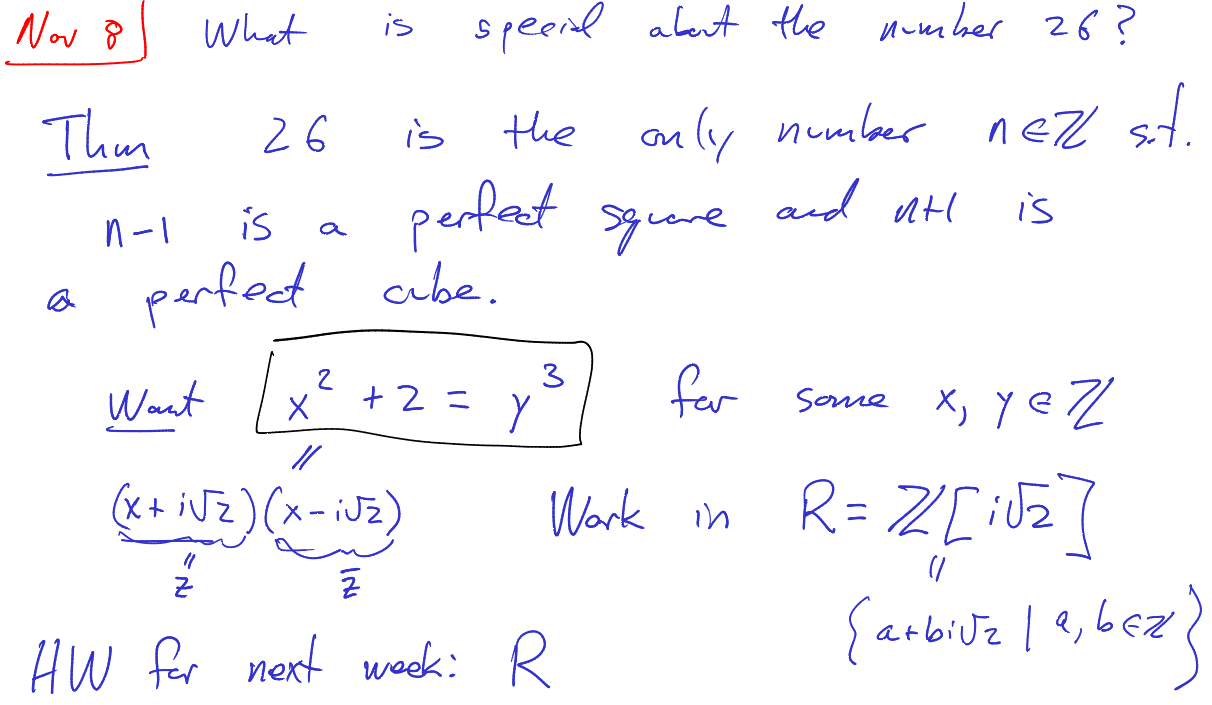 Nov 8 What is special about the number 26?
Thm 26 is the only number n∈ℤ s.t.
n-1 is a perfect square and n+1 is
a perfect cube.
Want x² + 2 = y³ for some x, y ∈ ℤ
=
(x + i√2)(x - i√2) Work in R = ℤ[i√2]
= = =
z z̄ {a+bi√2 | a, b∈ℤ}
HW for next week: R